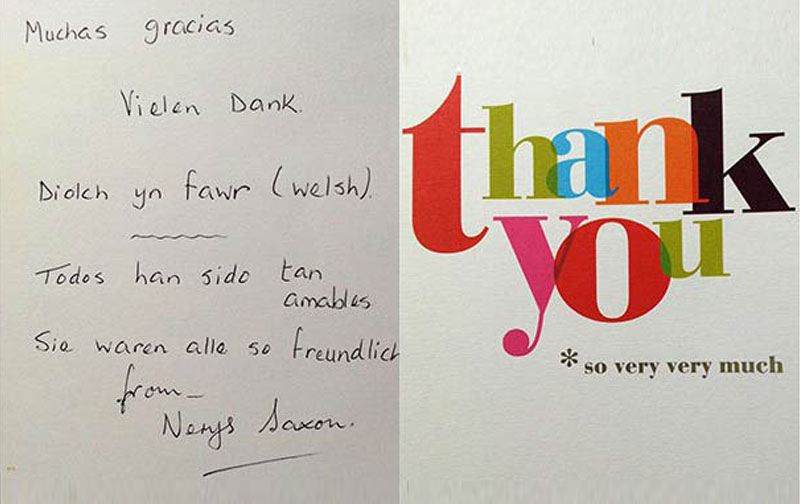 Muchas gracias
Vielen Dank.
Diolch yn fawr (welsh).
Todos han sido tan
amables
Sie waren alle so freundlich
from
Nerys Saxon.
thank
you
*so very very much